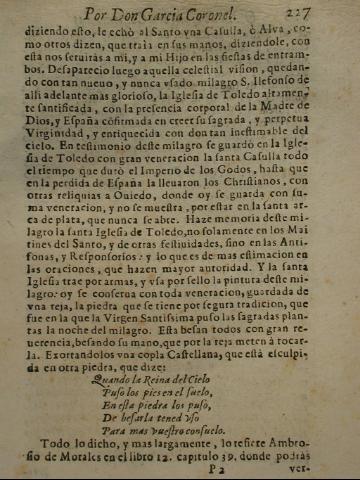 Por Don Garcia Coronel. 227
diziendo esto, le echò al Santo vna Casulla, ò Alva, co-
mo otros dizen, que traìa en sus manos, diziendole, con
esta nos seruiràs a mi, y a mi Hijo en las fiestas de entram-
bos. Desapareciò luego aquella celestial vision, quedan-
do con tan nueuo, y nunca vsado milagro S. Ilefonso de
alli adelante mas glorioso, la Iglesia de Toledo altamen-
te santificada, con la presencia corporal de la Madre de
Dios, y España cõfirmada en creer su sagrada, y perpetua
Virginidad, y enriquecida con don tan inestimable del
cielo. En testimonio deste milagro se guardò en la Igle-
sia de Toledo con gran veneracion la santa Casulla todo
el tiempo que durò el Imperio de los Godos, hasta que
en la perdida de España la lleuaron los Christianos, con
otras reliquias a Ouiedo, donde oy se guarda con su-
ma veneracion, y no se muestra, por estar en la santa ar-
ca de plata, que nunca se abre. Haze memoria deste mi-
lagro la santa Iglesia de Toledo, no solamente en los Mai
tines del Santo, y de otras festiuidades, sino en las Anti-
fonas, y Responsorios: y lo que es de mas estimacion en
las oraciones, que hazen mayor autoridad. Y la santa
Iglesia trae por armas, y vsa por sello la pintura deste mi-
lagro: oy se conserua con toda veneracion, guardada de
vna reja, la piedra que se tiene por segura tradicion, que
fue en la que la Virgen Santissima puso las sagradas plan-
tas la noche del milagro. Esta besan todos con gran re-
uerencia, besando su mano, que por la reja meten à tocar-
la. Exortandolos vna copla Castellana, que està esculpi-
da en otra piedra, que dize:
Quando la Reina del Cielo
Puso los pies en el suelo,
En esta piedra los puso,
De besarla tened vso
Para mas vuestro consuelo.
Todo lo dicho, y mas largamente, lo refiere Ambro-
sio de Morales en el libro 12. capitulo 39. donde podràs
P 2 ver-